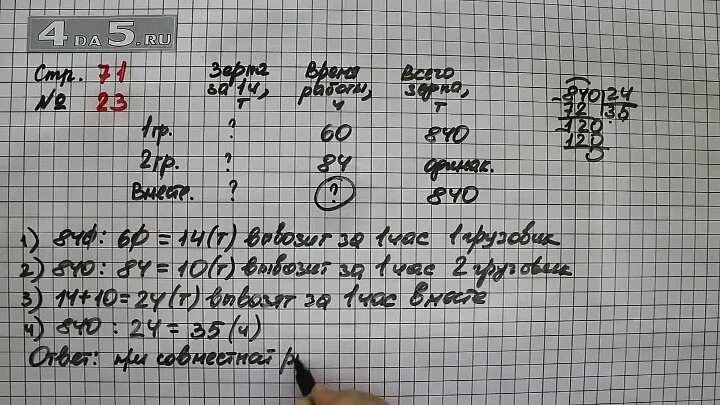 4DA5.RU
Стр. 71
№ 23
Зерна за 1ч, т
Время работы, ч
Всего зерна, т
1гр. ? 60 840
2гр. ? 84 одинак.
Вместе. ? ? 840
840 24
72 35
120
120
0
1) 840 : 60 = 14(т) вывозит за 1час 1грузовик
2) 840 : 84 = 10(т) вывозит за 1 час 2 грузовик
3) 14+10=24(т) вывозят за 1час вместе
4) 840 : 24 = 35(ч)
Ответ: при совместной р